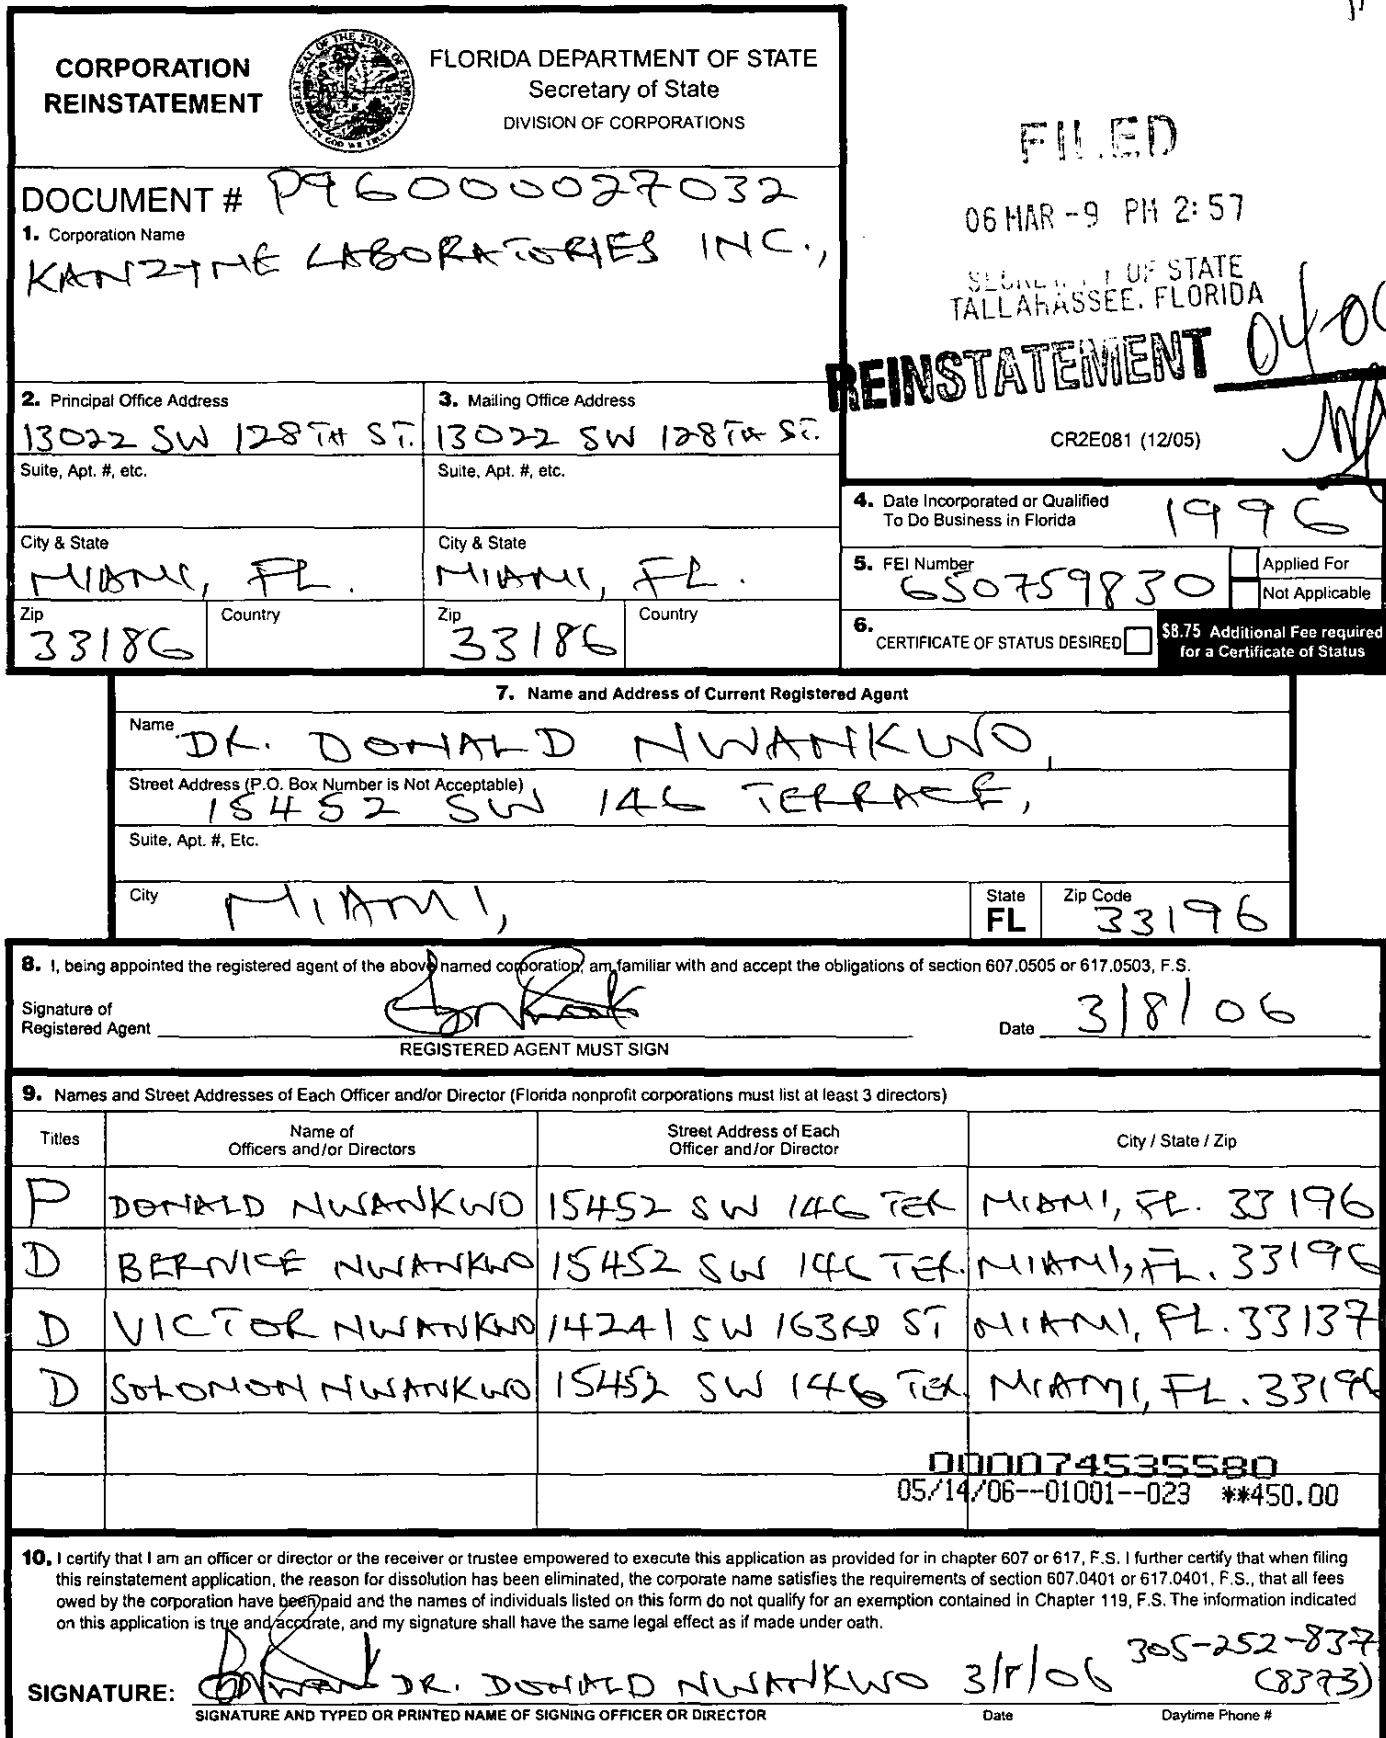 CORPORATION
REINSTATEMENT
FLORIDA DEPARTMENT OF STATE
Secretary of State
DIVISION OF CORPORATIONS
GREAT SEAL OF THE STATE OF FLORIDA
IN GOD WE TRUST
FILED
06 MAR -9 PM 2:57
OF STATE
TALLAHASSEE, FLORIDA
REINSTATEMENT
CR2E081 (12/05)
DOCUMENT # P96000027032
1. Corporation Name
KANZYME LABORATORIES INC.,
2. Principal Office Address
13022 SW 128TH ST.
Suite, Apt. #, etc.
City & State
MIAMI, FL.
Zip
33186
Country
3. Mailing Office Address
13022 SW 128TH ST.
Suite, Apt. #, etc.
City & State
MIAMI, FL.
Zip
33186
Country
4. Date Incorporated or Qualified
To Do Business in Florida
1996
5. FEI Number
650759830
Applied For
Not Applicable
6. CERTIFICATE OF STATUS DESIRED
$8.75 Additional Fee required
for a Certificate of Status
7. Name and Address of Current Registered Agent
Name
DR. DONALD NWANKWO,
Street Address (P.O. Box Number is Not Acceptable)
15452 SW 146 TERRACE,
Suite, Apt. #, Etc.
City
MIAMI,
State
FL
Zip Code
33196
8. I, being appointed the registered agent of the above named corporation, am familiar with and accept the obligations of section 607.0505 or 617.0503, F.S.
Signature of
Registered Agent
REGISTERED AGENT MUST SIGN
Date 3/8/06
9. Names and Street Addresses of Each Officer and/or Director (Florida nonprofit corporations must list at least 3 directors)
Titles
Name of
Officers and/or Directors
Street Address of Each
Officer and/or Director
City / State / Zip
P DONALD NWANKWO 15452 SW 146 TER MIAMI, FL. 33196
D BERNICE NWANKWO 15452 SW 146 TER. MIAMI, FL. 33196
D VICTOR NWANKWO 14241 SW 163RD ST MIAMI, FL. 33137
D SOLOMON NWANKWO 15452 SW 146 TER. MIAMI, FL. 33196
000074535580
05/14/06--01001--023 **450.00
10. I certify that I am an officer or director or the receiver or trustee empowered to execute this application as provided for in chapter 607 or 617, F.S. I further certify that when filing
this reinstatement application, the reason for dissolution has been eliminated, the corporate name satisfies the requirements of section 607.0401 or 617.0401, F.S., that all fees
owed by the corporation have been paid and the names of individuals listed on this form do not qualify for an exemption contained in Chapter 119, F.S. The information indicated
on this application is true and accurate, and my signature shall have the same legal effect as if made under oath.
SIGNATURE: DR. DONALD NWANKWO 3/8/06 305-252-837
(8373)
SIGNATURE AND TYPED OR PRINTED NAME OF SIGNING OFFICER OR DIRECTOR
Date
Daytime Phone #